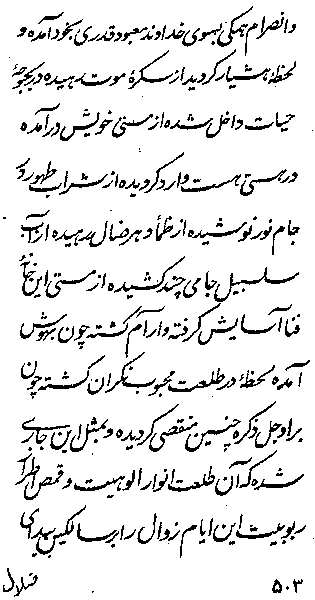 و انصرام همکی بسوی خداوند معبود قدری بخود آمده و
لحظهٔ هشیار کردیده از سکرهٔ موت رهیده در بحبوحهٔ
حیات داخل شده از مستی خویش در آمده
در هستی هست وارد کردیده از شراب طهور و
جام نور نوشیده از ظمأ دهر ضال رهیده از آب
سلسبیل جامی چند کشیده از مستی این خانهٔ
فنا آسایش کرفته و آرام کشته چون بهوش
آمده لحظهٔ در طلعت محبوب نکران کشته چون
براو جل ذکره چنین منقضی کردیده و بمثل این جاری
شده که آن طلعت انوار الوهیت و قمص اطراز
ربوبیت این ایام زوال را بر سالکین بیدای
۵۰۳
ضلال